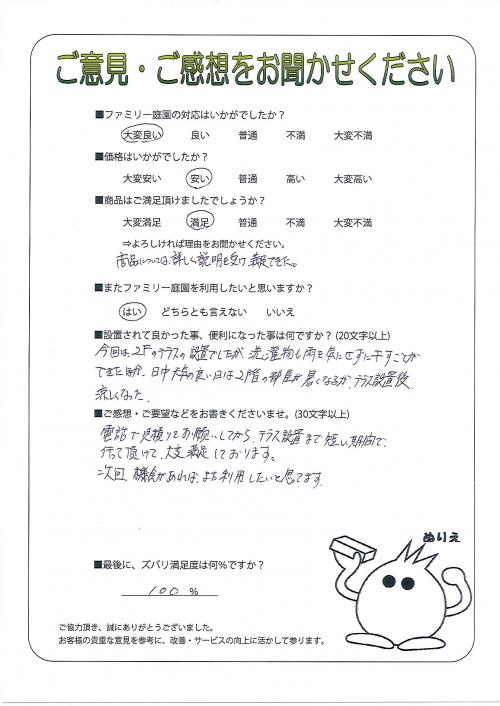 ご意見・ご感想をお聞かせください
■ファミリー庭園の対応はいかがでしたか？
大変良い 良い 普通 不満 大変不満
■価格はいかがでしたか？
大変安い 安い 普通 高い 大変高い
■商品はご満足頂けましたでしょうか？
大変満足 満足 普通 不満 大変不満
⇒よろしければ理由をお聞かせください。
商品については、詳しく説明を受け、満足できた。
■またファミリー庭園を利用したいと思いますか？
はい どちらとも言えない いいえ
■設置されて良かった事、便利になった事は何ですか？(20文字以上)
今回は、2Fのテラスの設置でしたが 洗濯物も雨を気にせずに干すことが
できたほか、日中天気の良い日は2階の部屋が暑くなるが、テラス設置後
涼しくなった。
■ご感想・ご要望などをお書きくださいませ。(30文字以上)
電話で見積りをお願いしてから、テラス設置まで短い期間で、
行って頂けて、大変満足しております。
次回、機会があれば、また利用したいと思てます
ぬりえ
■最後に、ズバリ満足度は何％ですか？
100 %
ご協力頂き、誠にありがとうございました。
お客様の貴重な意見を参考に、改善・サービスの向上に活かして参ります。